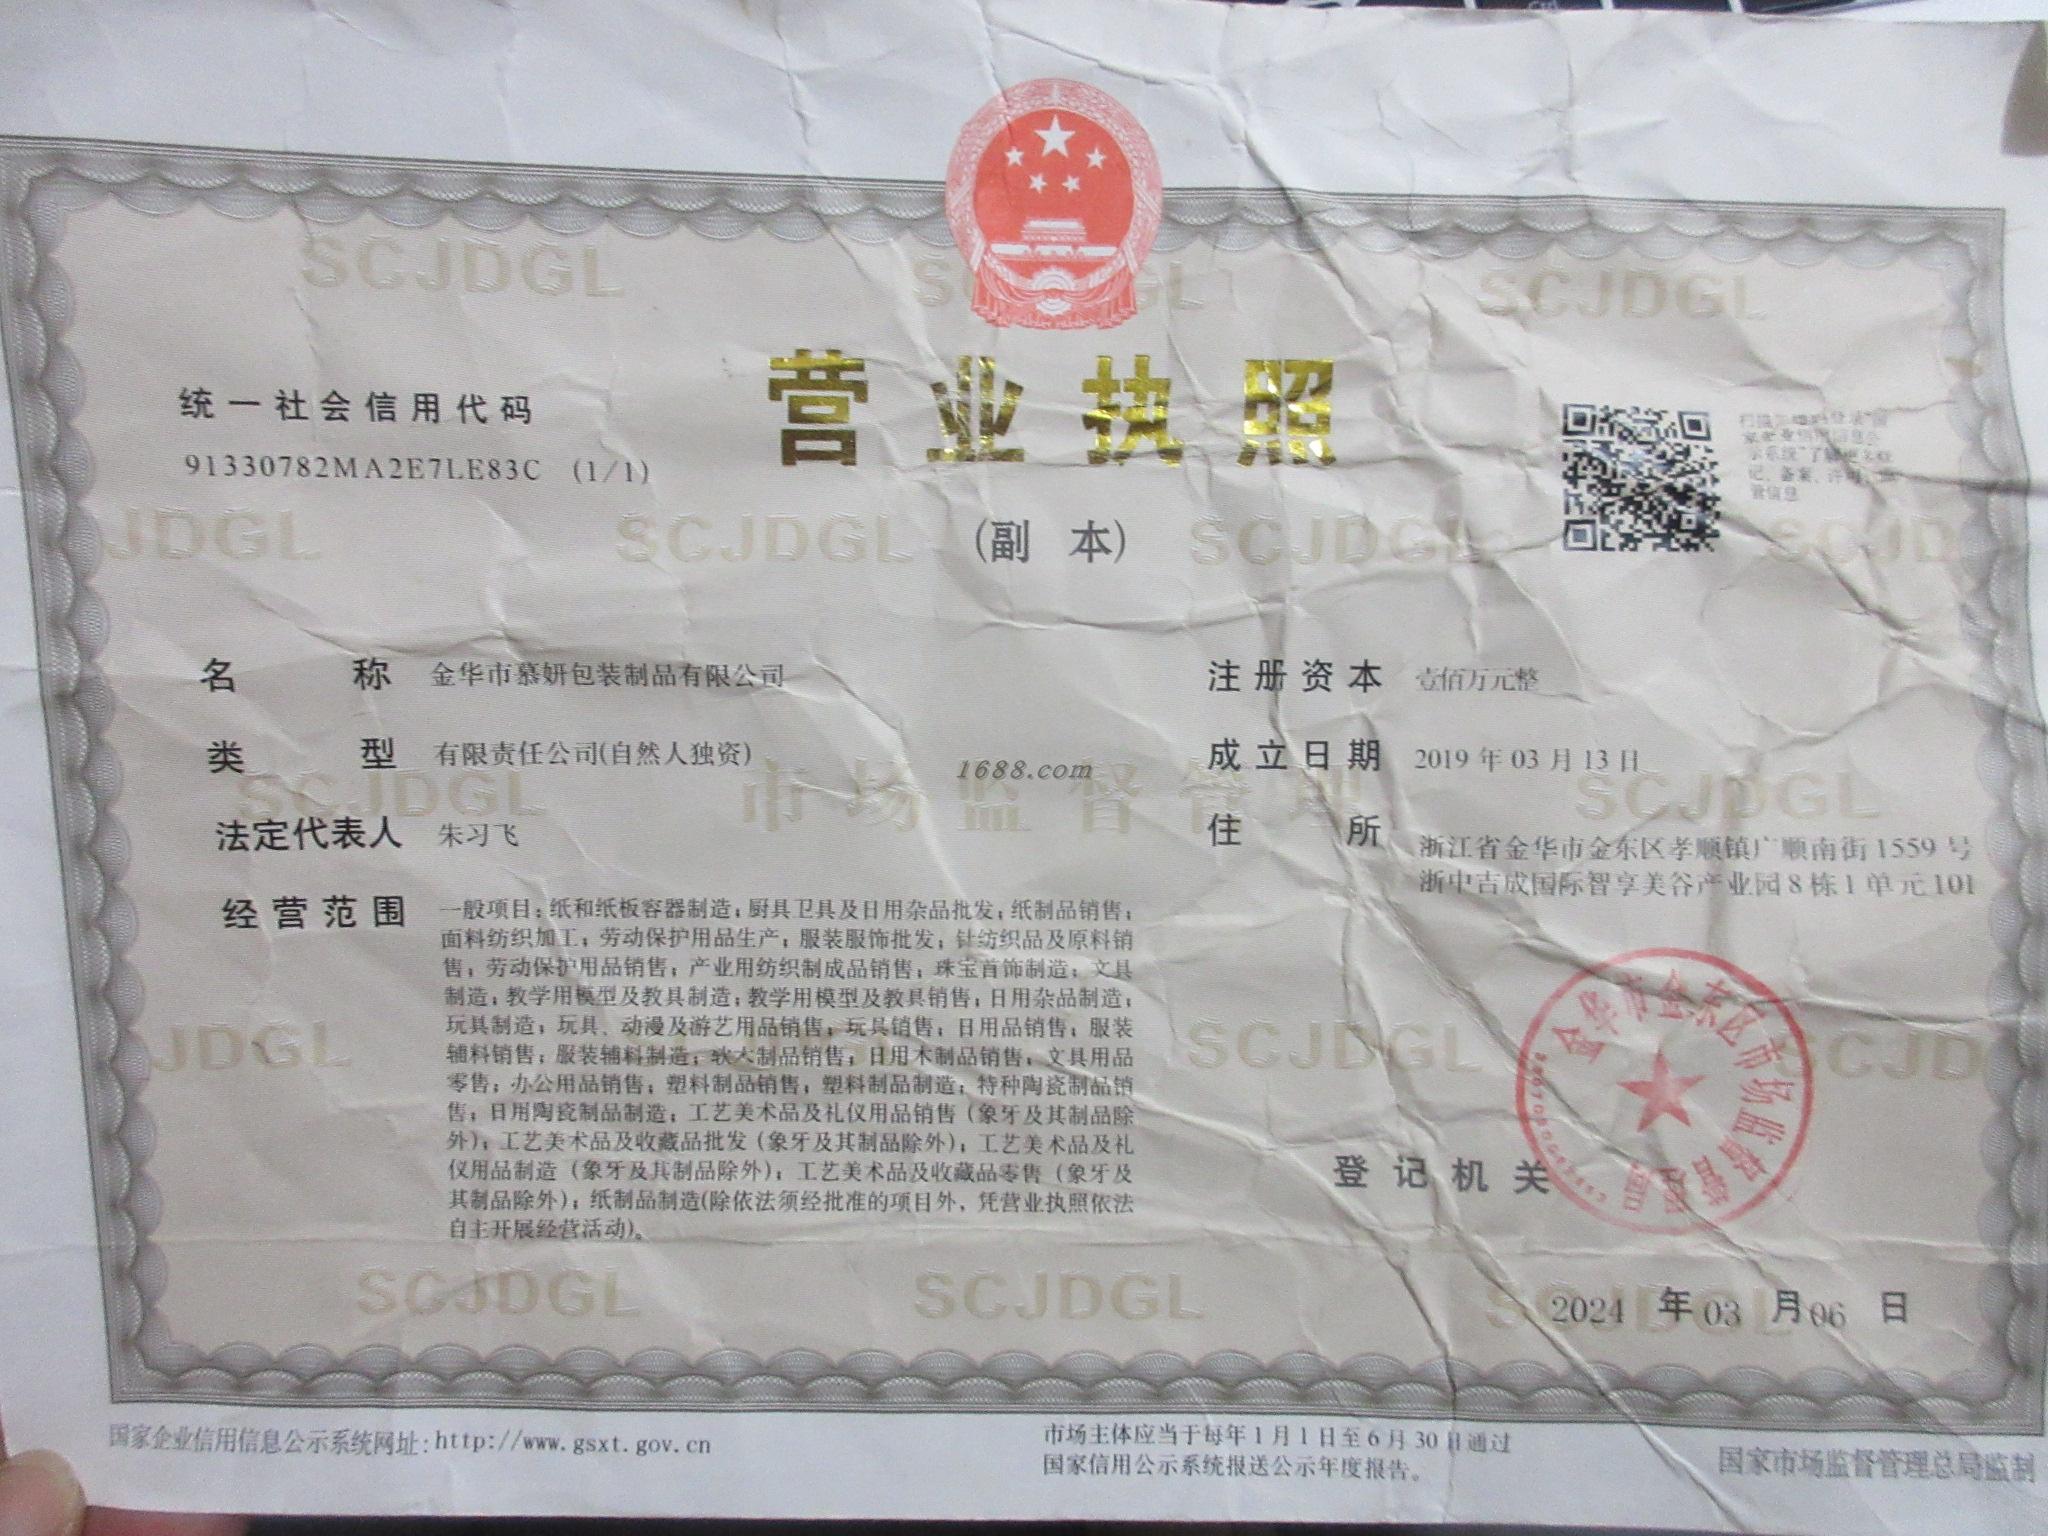 统一社会信用代码
91330782MA2E7LE83C (1/1)
营业执照
(副 本)
名 称 金华市慕妍包装制品有限公司
类 型 有限责任公司(自然人独资)
法定代表人 朱习飞
经营范围 一般项目：纸和纸板容器制造；厨具卫具及日用杂品批发；纸制品销售；
面料纺织加工；劳动保护用品生产；服装服饰批发；针纺织品及原料销
售；劳动保护用品销售；产业用纺织制成品销售；珠宝首饰制造；文具
制造；教学用模型及教具制造；教学用模型及教具销售；日用杂品制造；
玩具制造；玩具、动漫及游艺用品销售；玩具销售；日用品销售；服装
辅料销售；服装辅料制造；软木制品销售；日用木制品销售；文具用品
零售；办公用品销售；塑料制品销售；塑料制品制造；特种陶瓷制品销
售；日用陶瓷制品制造；工艺美术品及礼仪用品销售（象牙及其制品除
外）；工艺美术品及收藏品批发（象牙及其制品除外）；工艺美术品及礼
仪用品制造（象牙及其制品除外）；工艺美术品及收藏品零售（象牙及
其制品除外）；纸制品制造(除依法须经批准的项目外，凭营业执照依法
自主开展经营活动)。
注册资本 壹佰万元整
成立日期 2019 年 03 月 13 日
住 所 浙江省金华市金东区孝顺镇广顺南街 1559 号
浙中吉成国际智享美谷产业园 8 栋 1 单元 101
登记机关
金华市金东区市场监督管理局
2024 年 03 月 06 日
1688.com
市场监督管理
SCJDGL
国家企业信用信息公示系统网址：http://www.gsxt.gov.cn
市场主体应当于每年 1 月 1 日至 6 月 30 日通过
国家信用公示系统报送公示年度报告。
国家市场监督管理总局监制